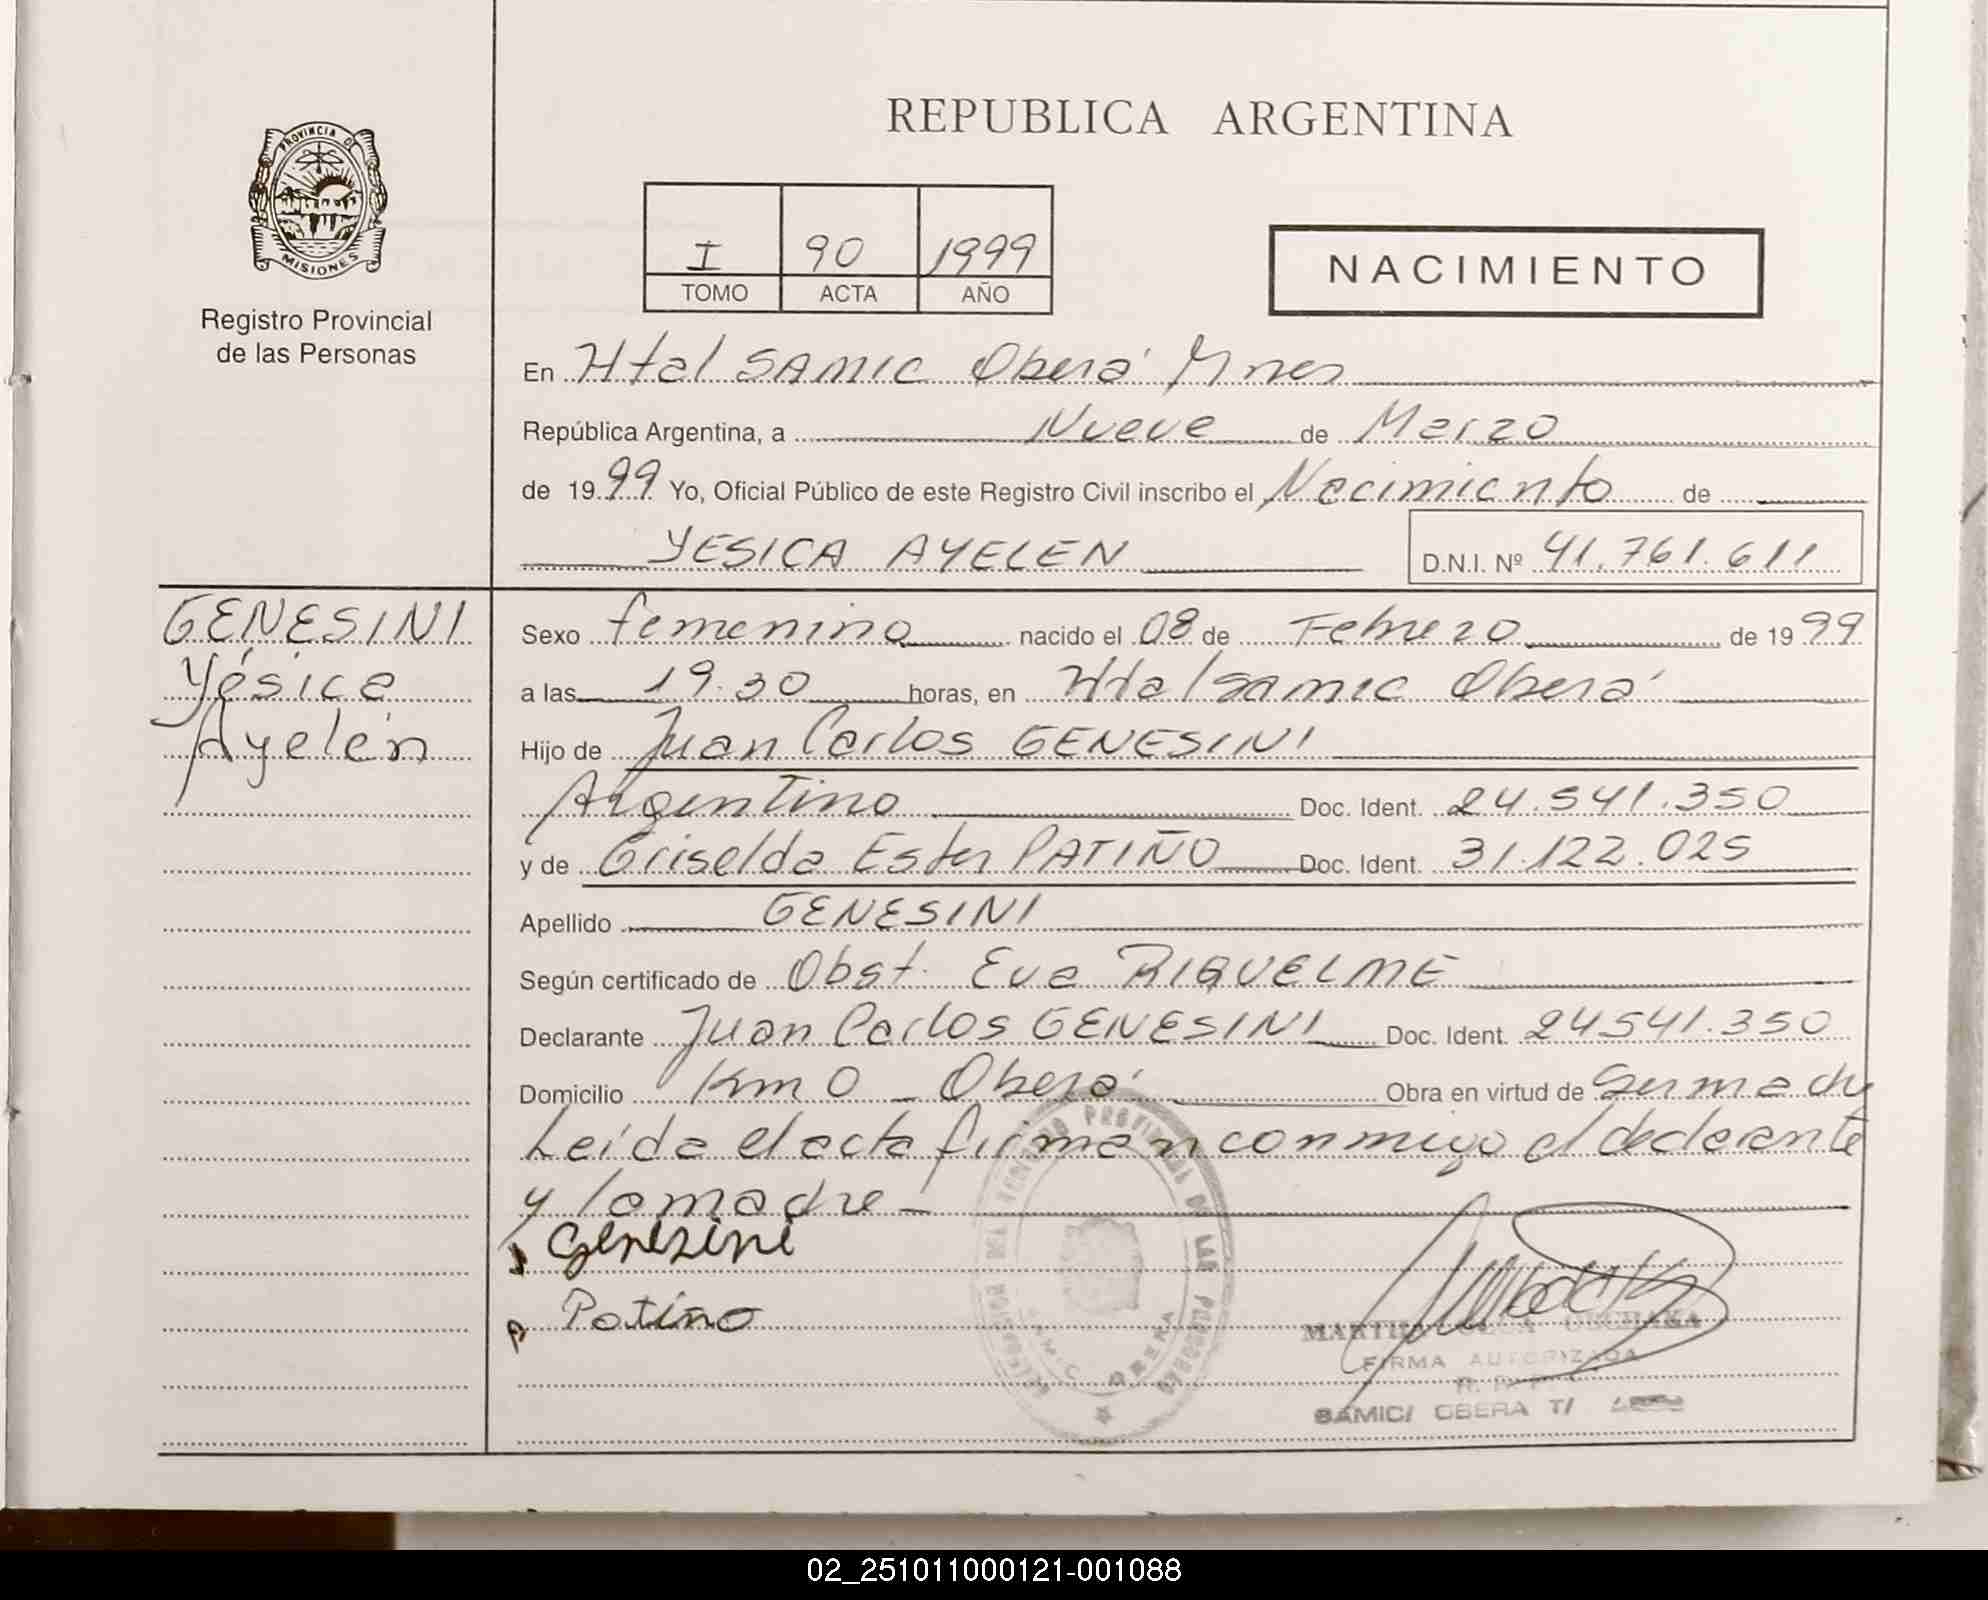 REPUBLICA ARGENTINA
PROVINCIA DE
MISIONES
Registro Provincial
de las Personas
I 90 1999
TOMO ACTA AÑO
NACIMIENTO
En Htal SAMIC Oberá Mnes
República Argentina, a Nueve de Marzo
de 1999 Yo, Oficial Público de este Registro Civil inscribo el Nacimiento de
YESICA AYELEN D.N.I. Nº 41.761.611
GENESINI
Yésica
Ayelén
Sexo femenino nacido el 08 de Febrero de 1999
a las 19.30 horas, en Htal SAMIC Oberá
Hijo de Juan Carlos GENESINI
Argentino Doc. Ident. 24.541.350
y de Griselda Ester PATIÑO Doc. Ident. 31.122.025
Apellido GENESINI
Según certificado de Obst. Eva RIQUELME
Declarante Juan Carlos GENESINI Doc. Ident. 24541.350
Domicilio Km 0 _ Oberá Obra en virtud de ser madre
Leída el acta firman conmigo el declarante
y la madre
Genesini
Patiño
REGISTRO PROVINCIAL DE LAS PERSONAS
SAMIC OBERA
FIRMA AUTORIZADA
SAMIC/ OBERA T/
02_251011000121-001088